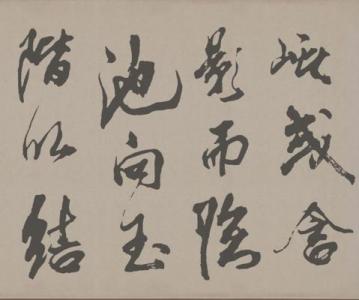 或含
影而臨
池向玉
階以結